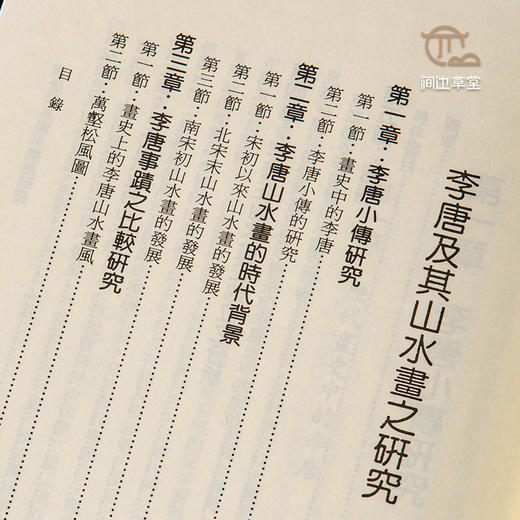 澗边草堂
李唐及其山水畫之研究
第一章：李唐小傳研究
第一節：畫史中的李唐
第二節：李唐小傳的研究
第二章：李唐山水畫的時代背景
第一節：宋初以來山水畫的發展
第二節：北宋末山水畫的發展
第三節：南宋初山水畫的發展
第三章：李唐事蹟之比較研究
第一節：畫史上的李唐山水畫風
第二節：萬壑松風圖
目錄